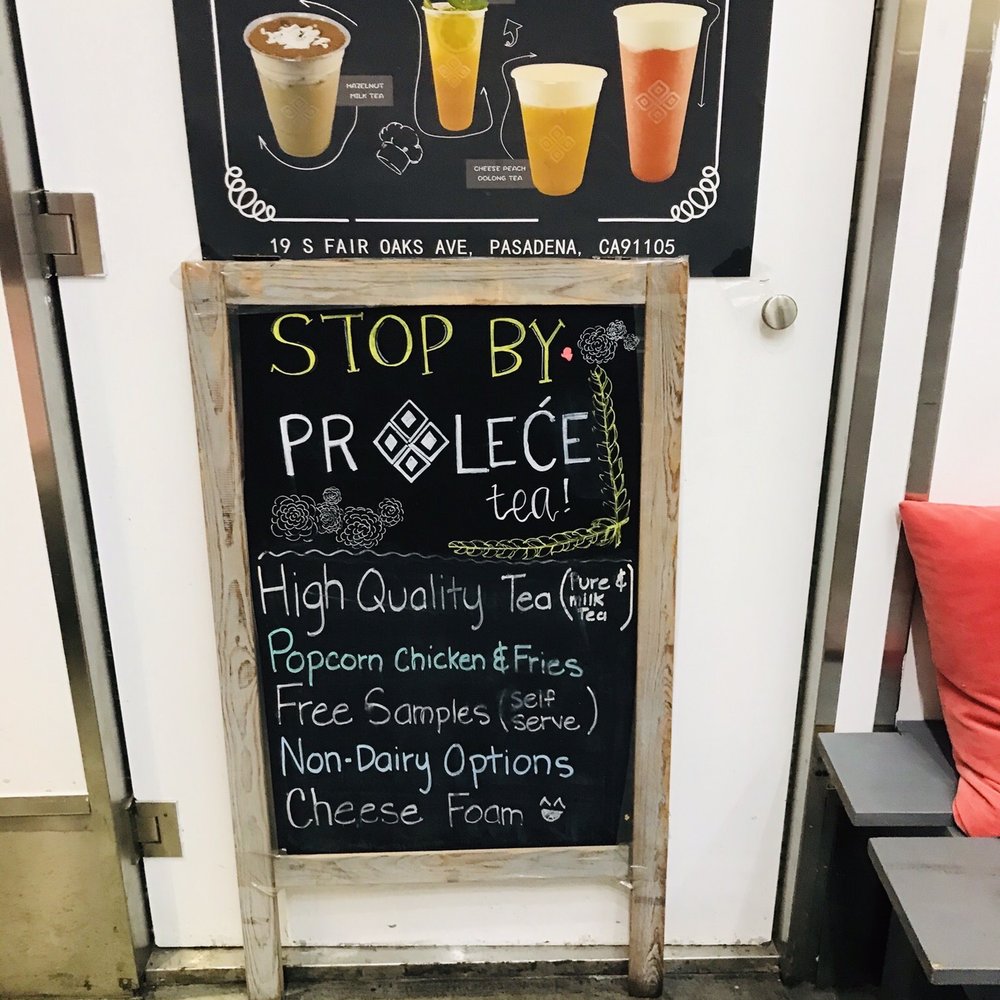 HAZELNUT
MILK TEA
CHEESE PEACH
OOLONG TEA
19 S FAIR OAKS AVE, PASADENA, CA91105
STOP BY
PR LEĆE
tea!
High Quality Tea (Pure &
milk
Tea)
Popcorn Chicken & Fries
Free Samples (self
serve)
Non-Dairy Options
Cheese Foam